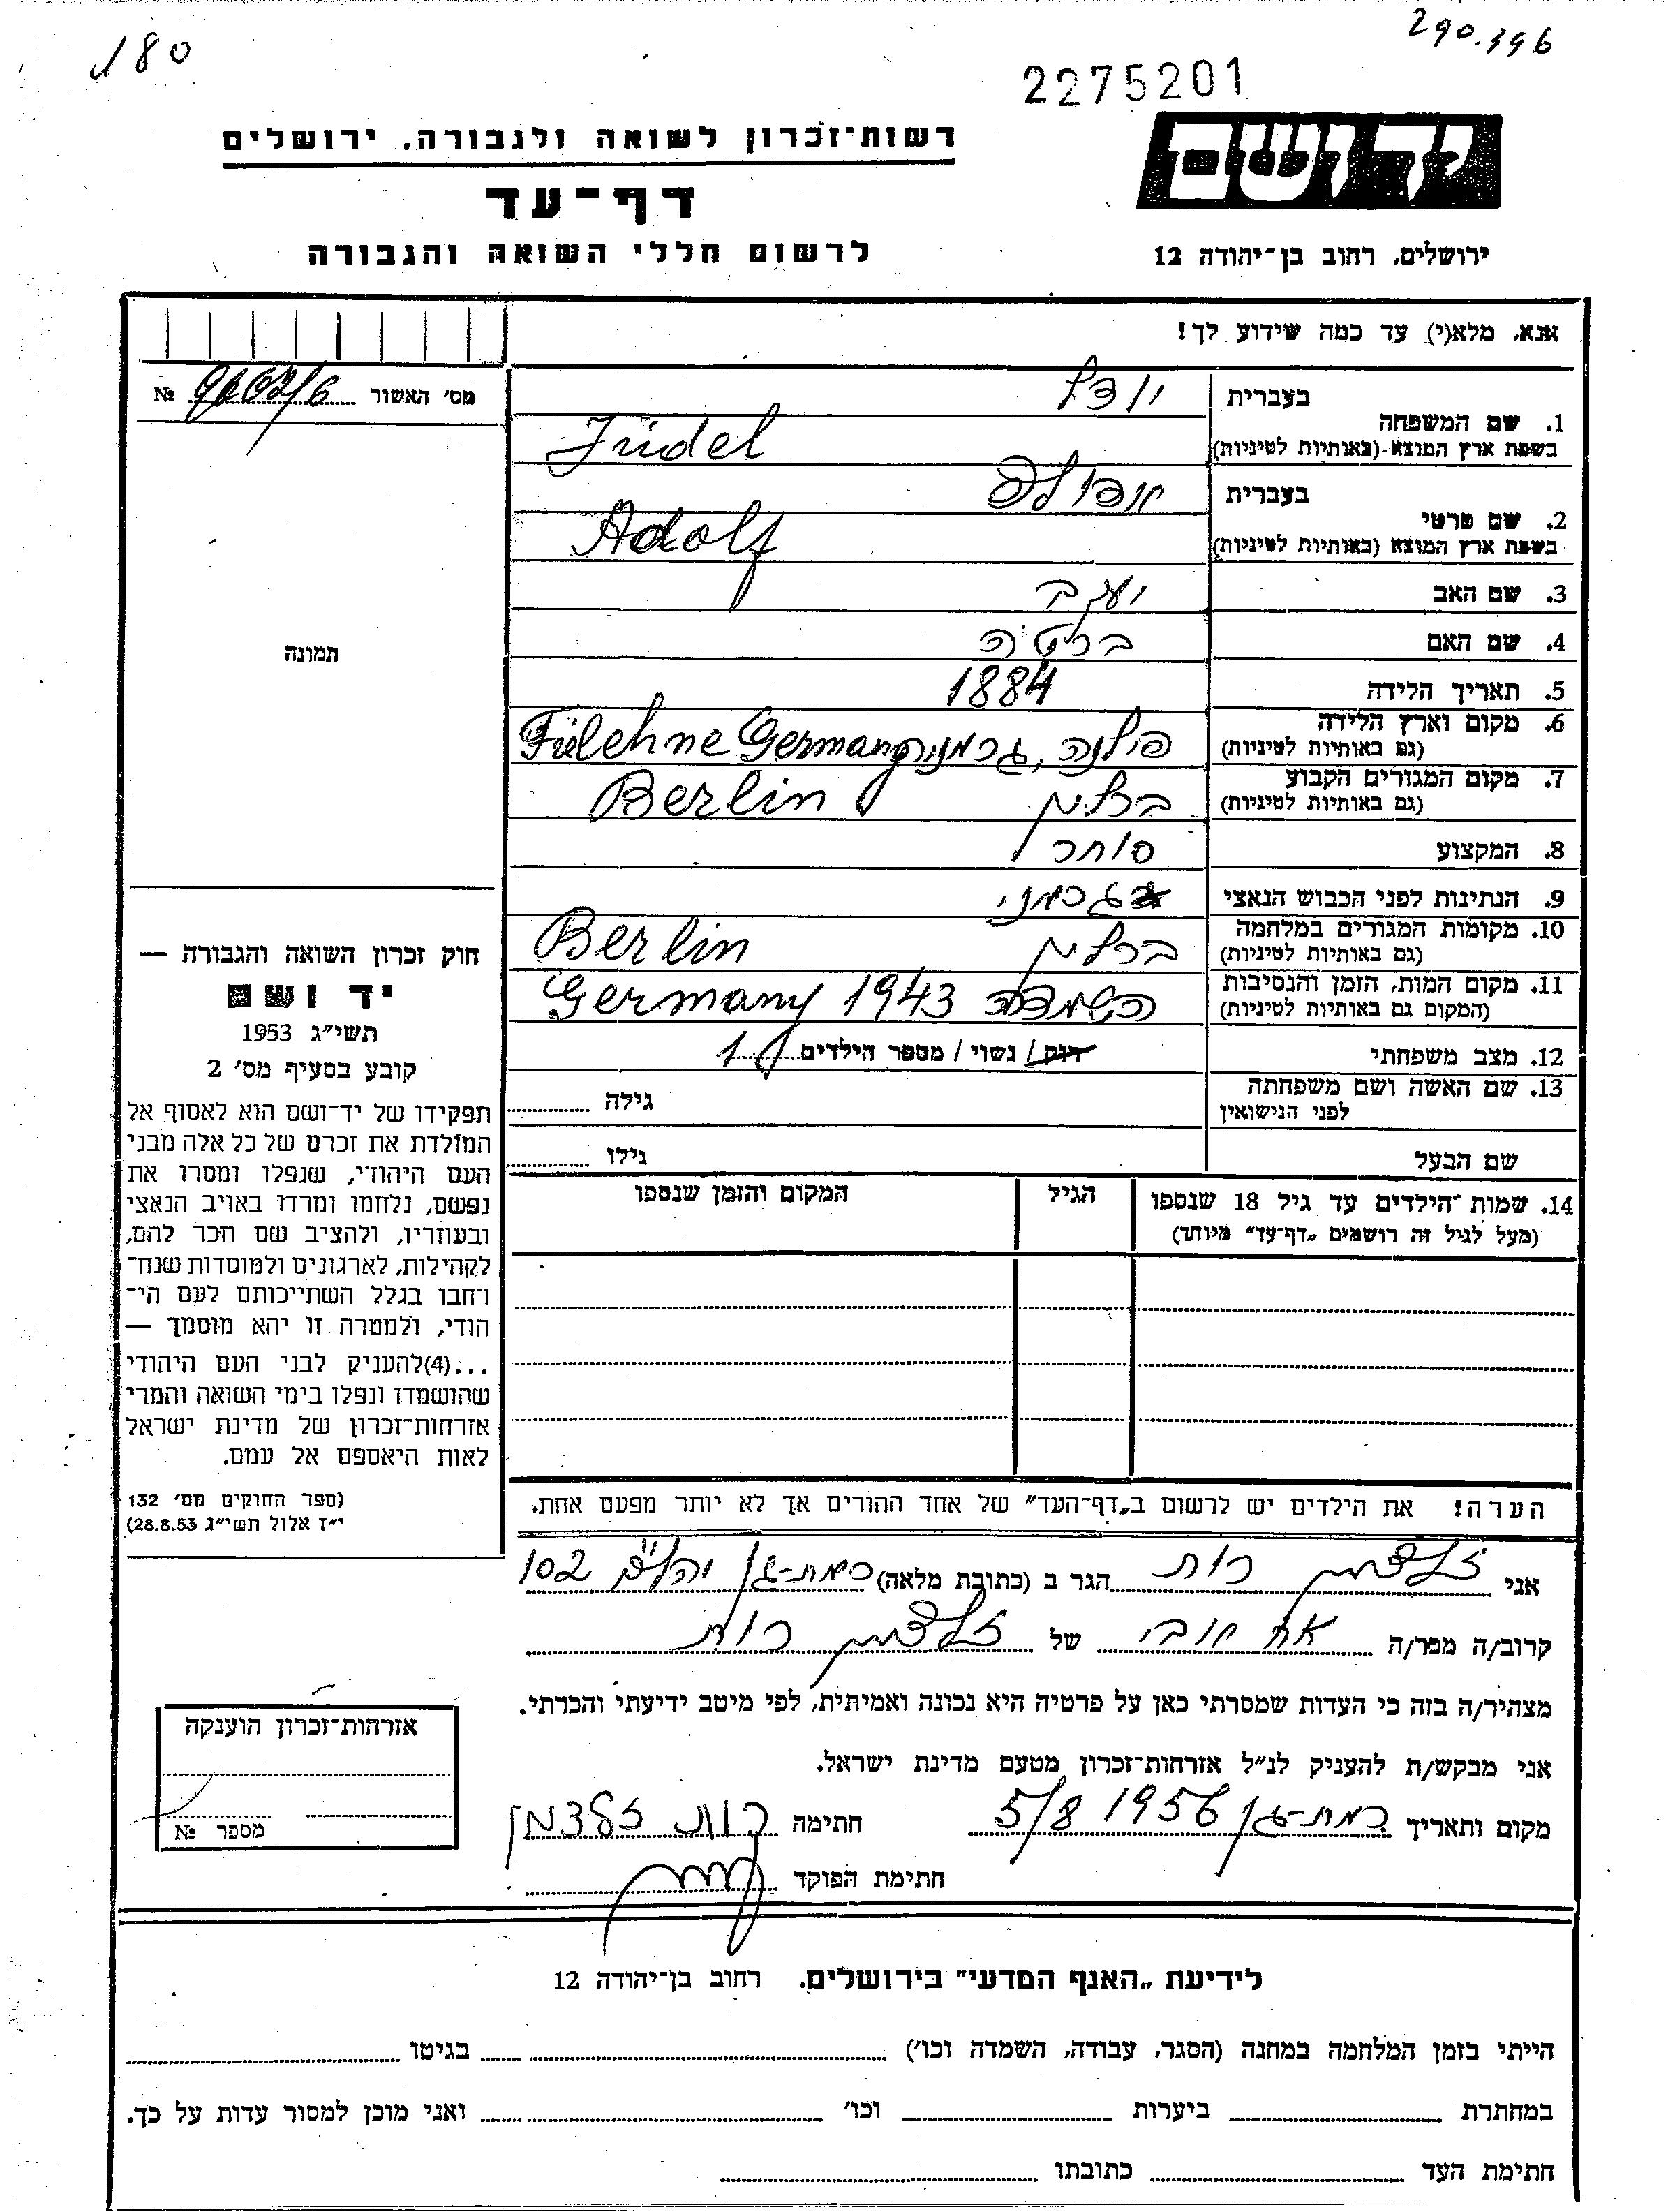 180
290.396
2275201
רשות־זכרון לשואה ולגבורה, ירושלים
יד ושם
דף־עד
לרשום חללי השואה והגבורה
ירושלים, רחוב בן־יהודה 12
אנא, מלא(י) עד כמה שידוע לך!
מס׳ האשור № 9602/6
תמונה
בעברית יודל
1. שם המשפחה
בשפת ארץ המוצא (באותיות לטיניות) Jüdel
בעברית אדולף
2. שם פרטי
בשפת ארץ המוצא (באותיות לטיניות) Adolf
3. שם האב יעקב
4. שם האם ברטה
5. תאריך הלידה 1884
6. מקום וארץ הלידה
(גם באותיות לטיניות) פילנה, גרמניה Filehne Germany
7. מקום המגורים הקבוע
(גם באותיות לטיניות) ברלין Berlin
8. המקצוע סוחר
9. הנתינות לפני הכבוש הנאצי גרמני
10. מקומות המגורים במלחמה
(גם באותיות לטיניות) ברלין Berlin
11. מקום המות, הזמן והנסיבות
(המקום גם באותיות לטיניות) השמדה 1943 Germany
12. מצב משפחתי רוק / נשוי / מספר הילדים 1
13. שם האשה ושם משפחתה
לפני הנישואין גילה
שם הבעל גילו
14. שמות הילדים עד גיל 18 שנספו
(מעל לגיל זה רושמים „דף־עד״ מיוחד)
הגיל
המקום והזמן שנספו
חוק זכרון השואה והגבורה —
יד ושם
תשי״ג 1953
קובע בסעיף מס׳ 2
תפקידו של יד־ושם הוא לאסוף אל
המולדת את זכרם של כל אלה מבני
העם היהודי, שנפלו ומסרו את
נפשם, נלחמו ומרדו באויב הנאצי
ובעוזריו, ולהציב שם וזכר להם,
לקהילות, לארגונים ולמוסדות שנח־
רחבו בגלל השתייכותם לעם הי־
הודי, ולמטרה זו יהא מוסמך —
...(4)להעניק לבני העם היהודי
שהושמדו ונפלו בימי השואה והמרי
אזרחות־זכרון של מדינת ישראל
לאות היאספם אל עמם.
(ספר החוקים מס׳ 132
י״ז אלול תשי״ג 28.8.53)
הערה! את הילדים יש לרשום ב„דף־העד״ של אחד ההורים אך לא יותר מפעם אחת.
אני זלצמן רות הגר ב (כתובת מלאה) רמת-גן 102
קרוב/ה מפר/ה אח אבי של זלצמן רות
מצהיר/ה בזה כי העדות שמסרתי כאן על פרטיה היא נכונה ואמיתית, לפי מיטב ידיעתי והכרתי.
אני מבקש/ת להעניק לנ״ל אזרחות־זכרון מטעם מדינת ישראל.
מקום ותאריך רמת-גן 5/8 1956 חתימה רות זלצמן
חתימת הפוקד
אזרחות־זכרון הוענקה
מספר №
לידיעת „האגף המדעי״ בירושלים. רחוב בן־יהודה 12
הייתי בזמן המלחמה במחנה (הסגר, עבודה, השמדה וכו׳) בגיטו
במחתרת ביערות וכו׳ ואני מוכן למסור עדות על כך.
חתימת העד כתובתו